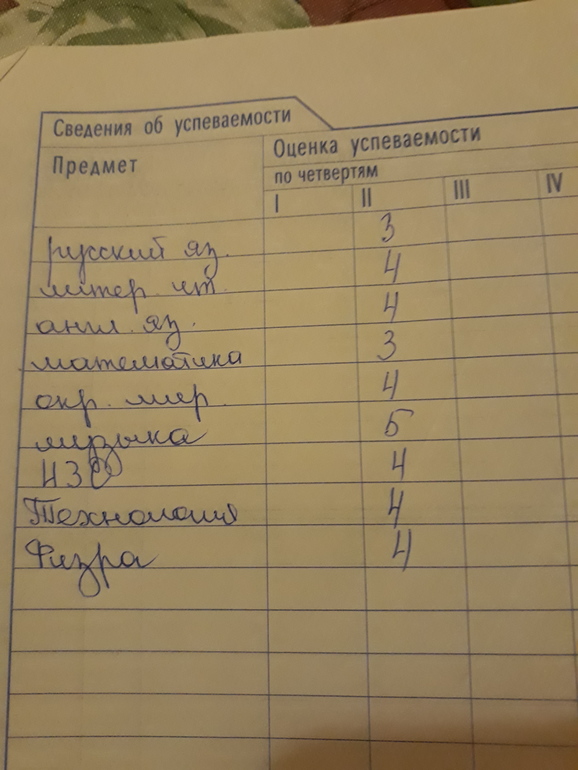 Сведения об успеваемости
Предмет
Оценка успеваемости
по четвертям
I II III IV
русский яз. 3
литер. чт. 4
англ. яз. 4
математика 3
окр. мир. 4
музыка 5
ИЗО 4
Технология 4
Физра 4